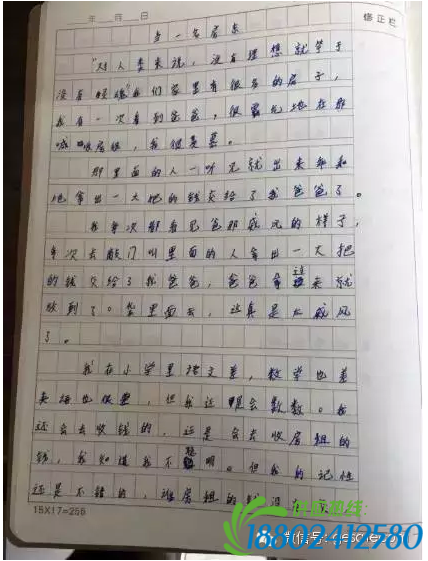 年 月 日 修正栏
当一名房东
"对人类来说，没有理想就等于
没有灵魂"我们家里有很多的房子，
我有一次看到爸爸，很霸气地在那
喊收房租，我很羡慕。
那里面的人一听见就出来乖乖
地拿出一大把的钱交给了我爸爸了。
我每次都看见爸那威风的样子，
每次去敲门叫里面的人拿出一大把
的钱交给了我爸爸，爸爸拿过来就
放到了口袋里面去，这真是太威风
了。
我在小学里语文差，数学也差
英语也很差，但我还是会数数。我
还会去收钱的，还是会去收房租的
钱，我知道我不聪明。但我的记性
还是不错的，谁房租的钱没
15X17=255
热线:
18802412580
微信号: